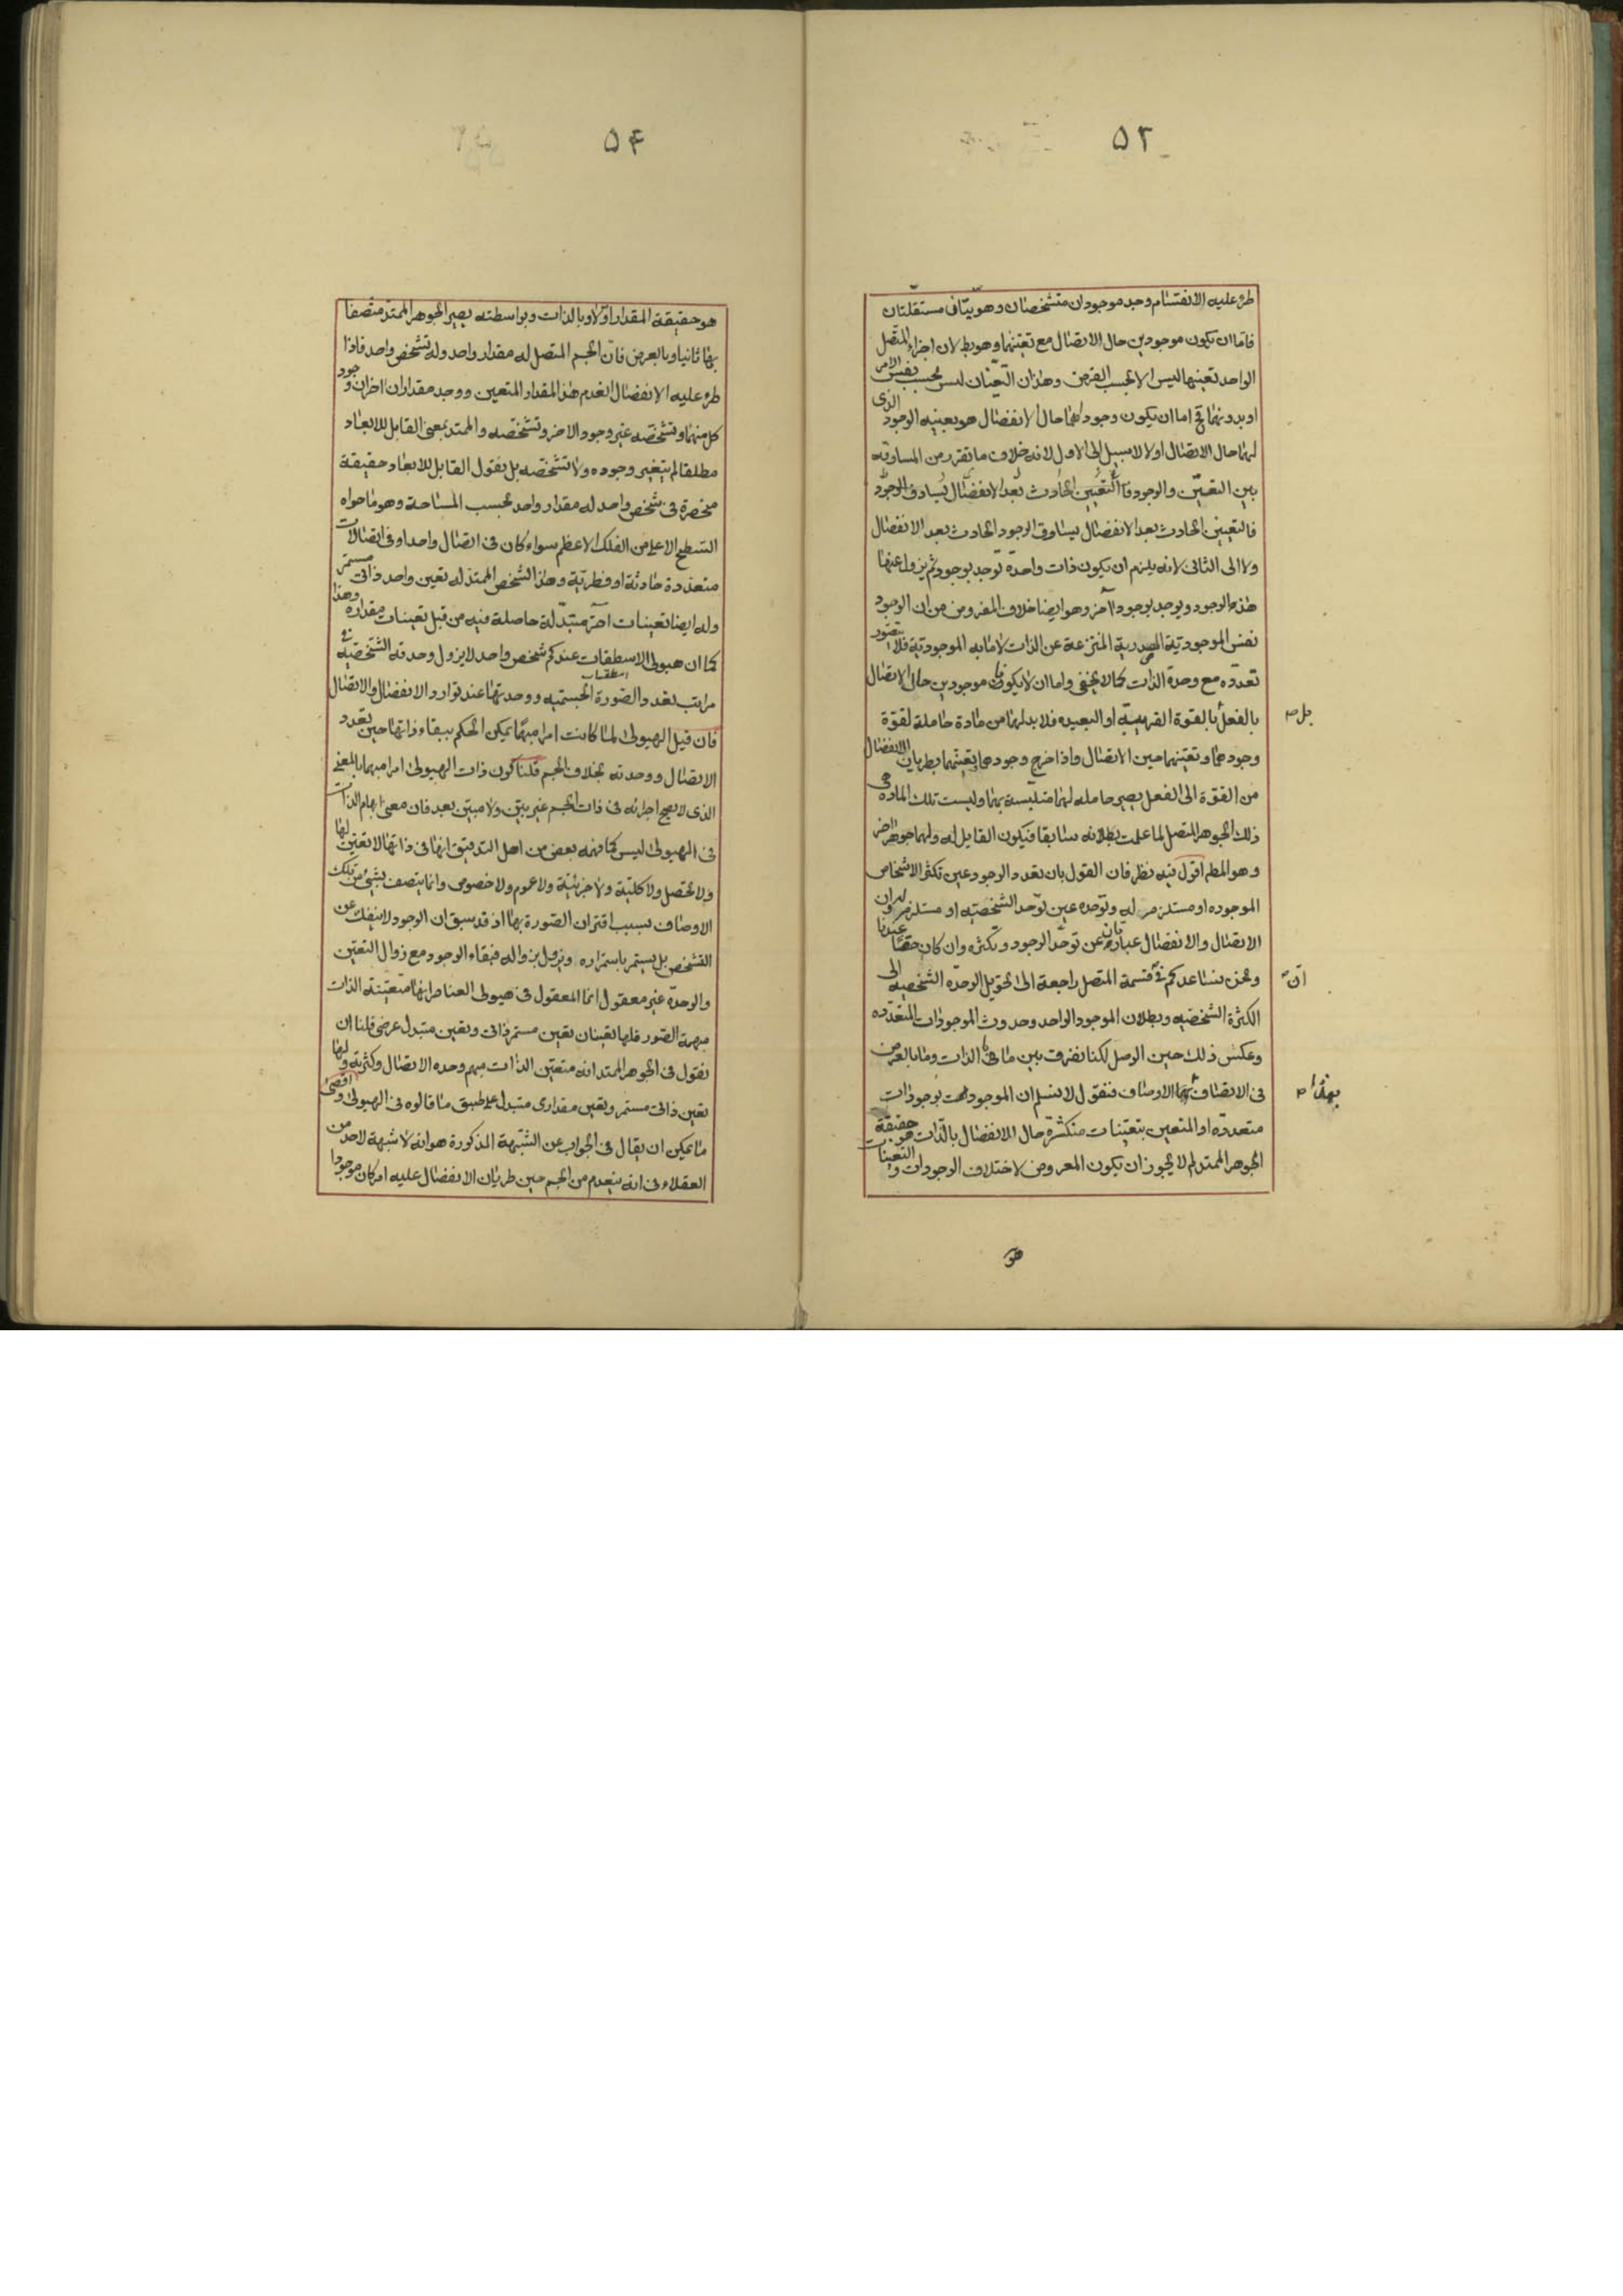 ۵۳
طرء عليه الانقسام وجد موجودان متشخصان وهويتان مستقلتان
فاما ان يكون موجودين حال الاتصال مع تعينهما وهو بط لان اجزاء المتصل
الواحد تعينها ليس الا بحسب الفرض وهذان التعينان ليس بحسب نفس الامر
او بدونهما فح اما ان يكون وجودهما حال الانفصال هو بعينه الوجود الذى
لهما حال الاتصال او لا لا سبيل الى الاول لانه خلاف ما تقرر من المساوقه
بين التعين والوجود فالتعين الحادث بعد الانفصال يساوق الوجود
فالتعين الحادث بعد الانفصال يساوق الوجود الحادث بعد الانفصال
ولا الى الثانى لانه يلزم ان يكون ذات واحدة توجد بوجود ثم يزول عنها
هذا الوجود ويوجد بوجود آخر وهو ايضا خلاف المفروض من ان الوجود
نفس الموجودية المصدرية المنتزعة عن الذات لا ما به الموجودية فلا يتصور
تعدده مع وحدة الذات كما لا يخفى واما ان لا يكونا موجودين حال الاتصال
بالفعل بل بالقوة القريبة او البعيده فلا بد لهما من مادة حاملة لقوة
وجودهما وتعينهما حين الاتصال واذا خرج وجودهما وتعينهما بطريان الانفصال
من القوة الى الفعل يصير حامله لهما متلبسة بهما وليست تلك الماده هى
ذلك الجوهر المتصل لما علمت بطلانه سابقا فيكون القابل له ولهما جوهر اخر
وهو المط اقول فيه نظر فان القول بان تعدد الوجود عين تكثر الاشخاص
الموجوده او مستلزم له وتوحده عين توحد الشخصيه او مستلزم له وان
الاتصال والانفصال عبارتان عن توحد الوجود وتكثره وان كان حقا عندنا
ونحن نساعدكم فى ان قسمة المتصل راجعة الى تحويل الوحدة الشخصيه الى
الكثرة الشخصيه وبطلان الموجود الواحد وحدوث الموجودات المتعدده
وعكس ذلك حين الوصل لكنا نفرق بين ما بالذات وما بالعرض
فى الاتصاف بهذه الاوصاف فنقول لا نسلم ان الموجود بوجودات
متعددة او المتعين بتعينات متكثرة حال الانفصال بالذات هو حقيقة
الجوهر الممتد لم لا يجوز ان يكون المعروض لاختلاف الوجودات والتعينات
بل ص
ان
بهذا ص
هو
۵۴
هو حقيقة المقدار اولا وبالذات وبواسطته يصير الجوهر الممتد متصفا
بها ثانيا وبالعرض فان الجسم المتصل له مقدار واحد وله تشخص واحد فاذا
طرء عليه الانفصال انعدم هذا المقدار المتعين ووجد مقداران اخران وجود
كل منهما وتشخصه غير وجود الاخر وتشخصه والممتد بمعنى القابل للابعاد
مطلقا لم يتغير وجوده ولا تشخصه بل نقول القابل للابعاد حقيقة
منحصرة فى شخص واحد له مقدار واحد بحسب المساحة وهو ما حواه
السطح الاعلى من الفلك الاعظم سواء كان فى اتصال واحد او فى اتصالات
متعددة حادثة او فطرية وهذا الشخص الممتد له تعين واحد ذاتى مستمر
وله ايضا تعينات اخر متبدلة حاصلة فيه من قبل تعينات مقداره وهذا
كما ان هيولى الاسطقسات عندكم شخص واحد لا يزول وحدته الشخصية فى
مراتب تعدد الصورة الجسميه ووحدتها عند توارد الانفصال والاتصال
فان قيل الهيولى لما كانت امرا مبهما يمكن الحكم ببقاء ذاتها حين تعدد
الاتصال ووحدته بخلاف الجسم قلنا كون ذات الهيولى امرا مبهما بالمعنى
الذى لا يصح اجرائه فى ذات الجسم غير بين ولا مبين بعد فان معنى ابهام الذات
فى الهيولى ليس كما فهمه بعض من اهل التدقيق انها فى ذاتها لا تعين لها
ولا تحصل ولا كلية ولا جزئية ولا عموم ولا خصوص وانما يتصف بشئ من تلك
الاوصاف بسبب اقتران الصورة بها اذ قد سبق ان الوجود لا ينفك عن
التشخص بل يستمر باستمراره ويزول بزواله فبقاء الوجود مع زوال التعين
والوحدة غير معقول انما المعقول فى هيولى العناصر انها متعينة الذات
مبهمة الصور فلها تعينان تعين مستمر ذاتى وتعين متبدل عرضى قلنا ان
نقول فى الجوهر الممتد انه متعين الذات مبهم وحده الاتصال وكثرته ولها
تعين ذاتى مستمر وتعين مقدارى متبدل على طبق ما قالوه فى الهيولى واقصى
ما يمكن ان يقال فى الجواب عن الشبهة المذكورة هو انه لا شبهة لاحد من
العقلاء فى انه ينعدم من الجسم حين طريان الانفصال عليه امر كان موجودا